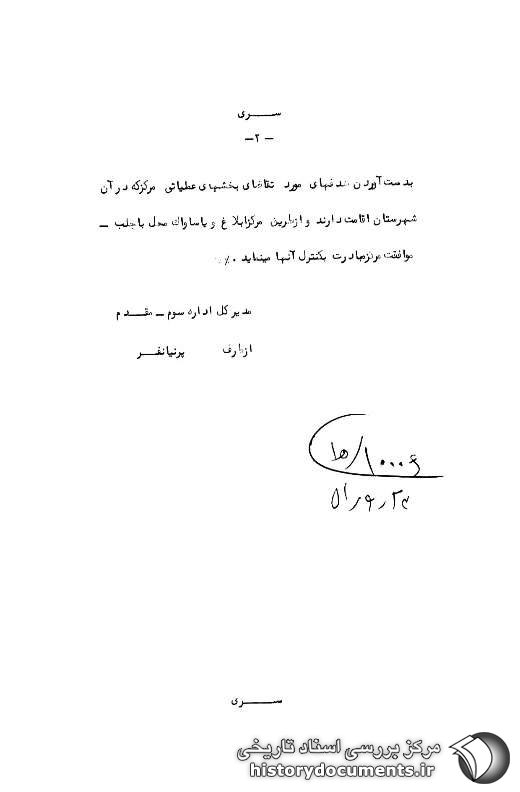 ســــری
-۲-
بدست آوردن هدفهای مورد تقاضای بخشهای عملیاتی مرکز که در آن
شهرستان اقامت دارند و از طریق مرکز ابلاغ و یا ساواک محل با جلب ـ
موافقت مرکز مبادرت بکنترل آنها مینماید ./.
مدیر کل اداره سوم ـ مقــدم
از طرف پرنیانفــر
۱۰۰۰۶/ها
ســــری
مرکز بررسی اسناد تاریخی
historydocuments.ir